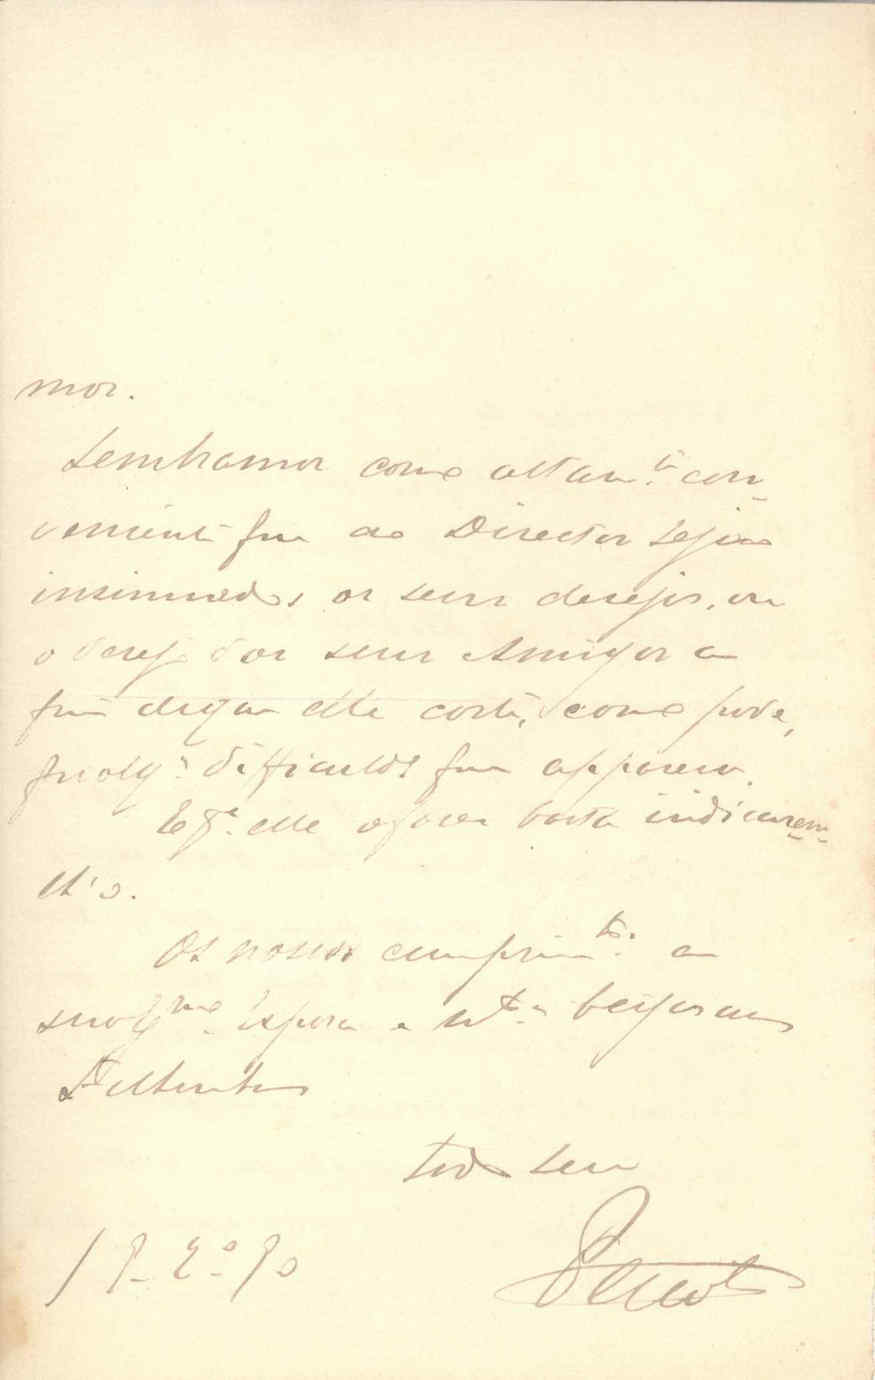 mos.
Lembramos como altam.te con-
veniente que ao Director sejão
insinuados os seus desejos, ou
o desejo dos seus Amigos a
fim de que elle corte, como pode,
qualq.r difficuld.e que appareça.
E q.e elle o fará basta indicarem-
lh'o.
Os nossos cumprim.tos a
sua Ex.ma Espoza e beijarão
todo seu